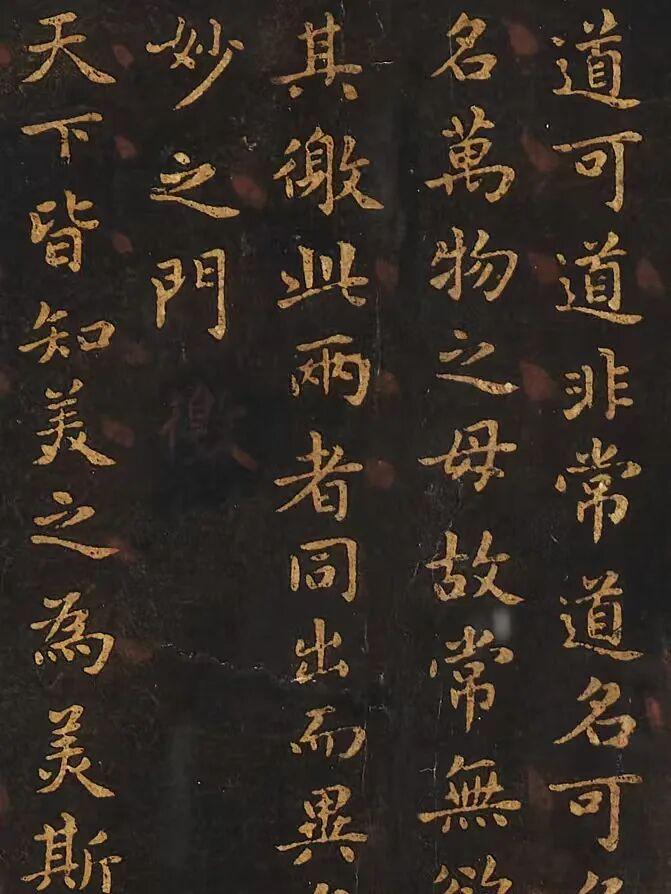 道可道非常道名可名
名萬物之母故常無欲
其徼此兩者同出而異名
妙之門
天下皆知美之為美斯